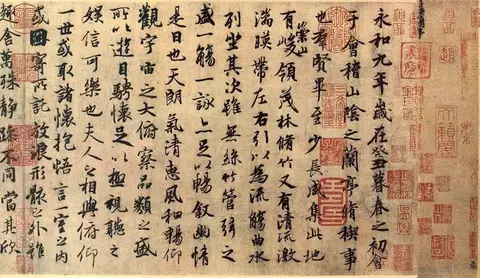 永和九年歲在癸丑暮春之初會
于會稽山陰之蘭亭脩稧事
也羣賢畢至少長咸集此地
有崇山峻領茂林脩竹又有清流激
湍暎帶左右引以為流觴曲水
列坐其次雖無絲竹管弦之
盛一觴一詠亦足以暢敘幽情
是日也天朗氣清惠風和暢仰
觀宇宙之大俯察品類之盛
所以遊目騁懷足以極視聽之
娛信可樂也夫人之相與俯仰
一世或取諸懷抱悟言一室之內
或因寄所託放浪形骸之外雖
趣舍萬殊静躁不同當其欣